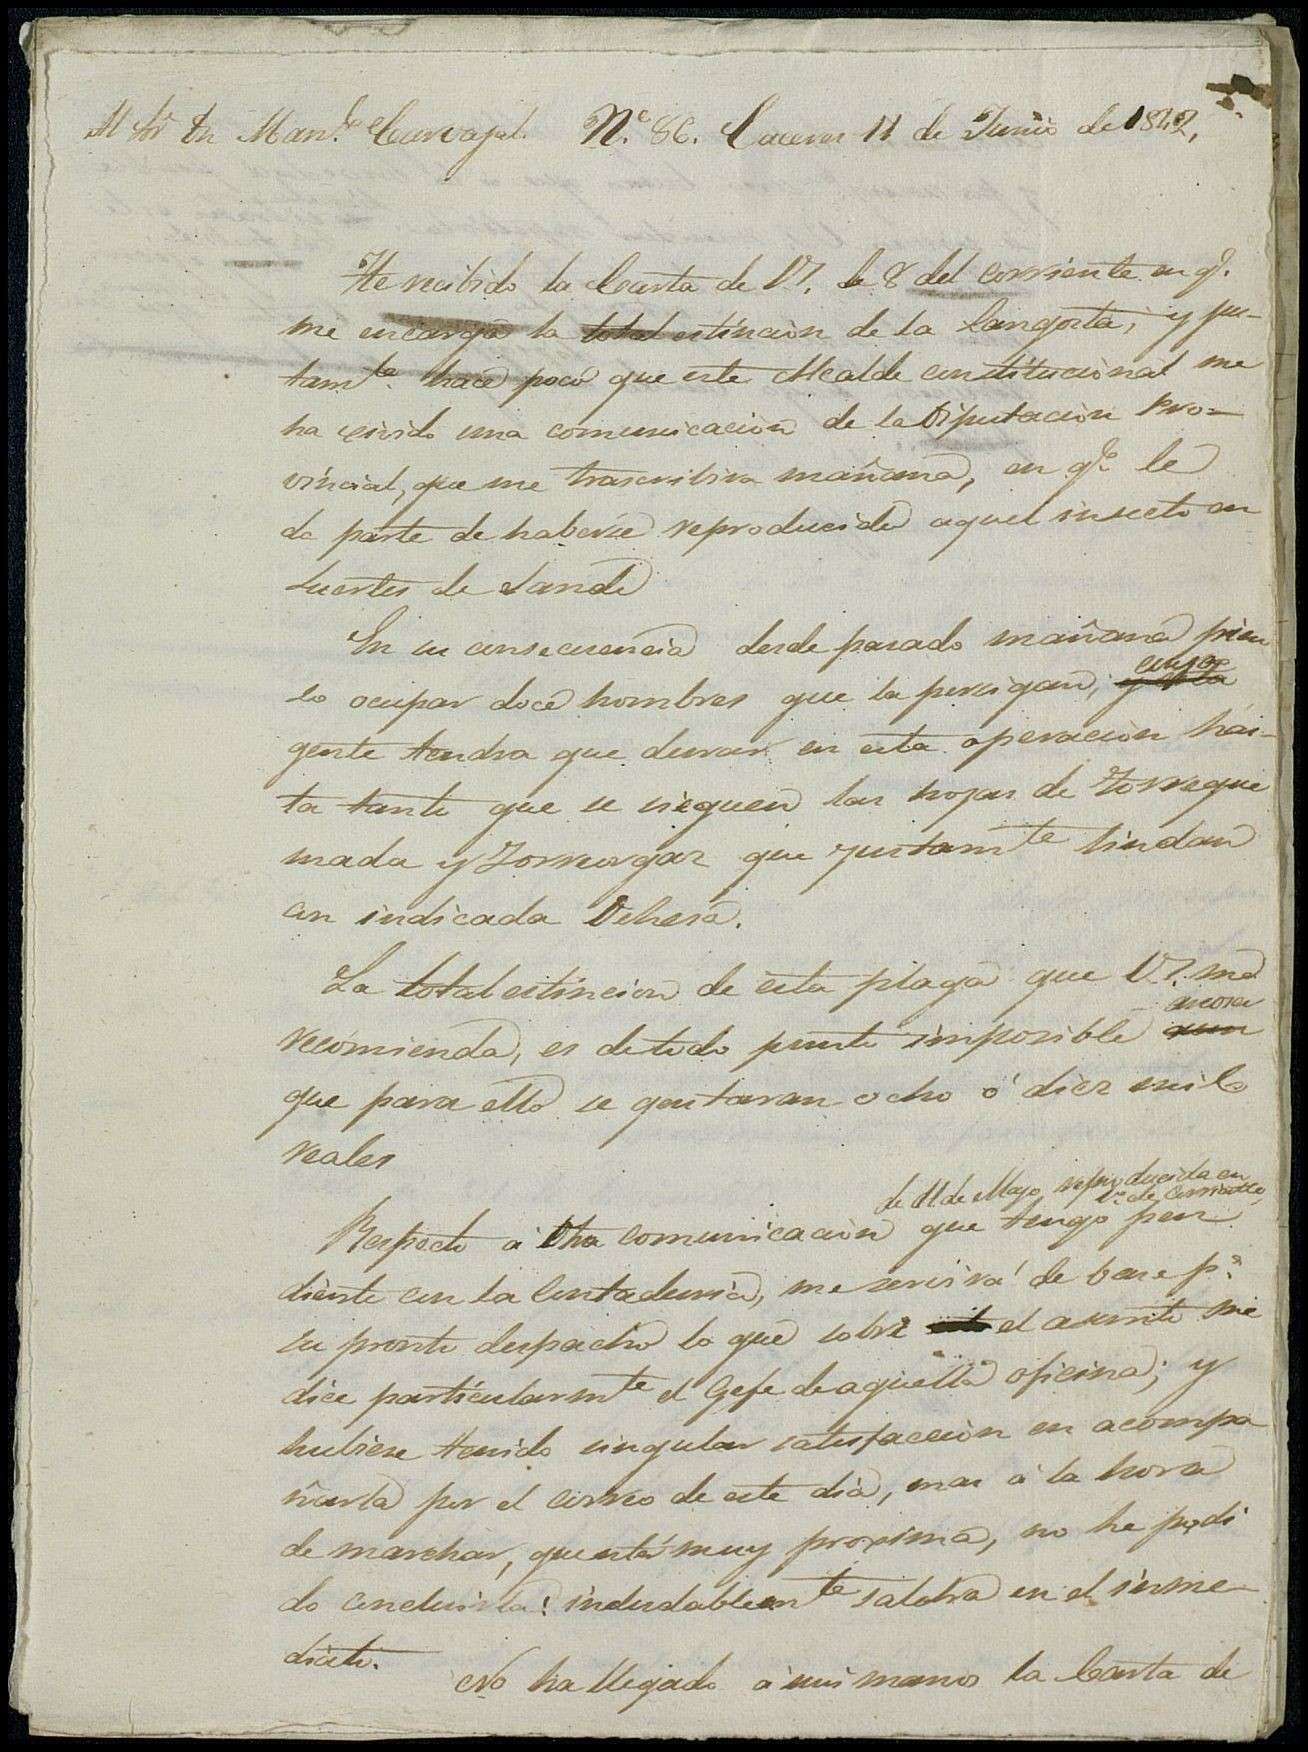 Al Sr Dn Man.l Carvajal. N.e 86. Caceres 11 de Junio de 1842.
He recibido la Carta de V. de 8 del corriente en q.e
me encarga la total estincion de la langosta, y jus-
tam.te hace poco que este Alcalde constitucional me
ha leivido una comunicacion de la Diputacion Pro-
vincial, que me trascribira mañana, en q.e le
da parte de haberse reproducido aquel insecto en
Suertes de Sande
En su consecuencia desde pasado mañana pien
so ocupar doce hombres que la persigan, cuya
gente tendra que durar en esta operacion hás-
ta tanto que se sieguen las hojas de Torreque
mada y Torreorgaz que justam.te lindan
con indicada Dehesa.
La total estincion de esta plaga que V. me
recomienda, es de todo punto imposible aun
que para ello se gastaran ocho ó diez mil
reales
de 11 de Mayo reproducida en
1.o de corriente,
Respecto á Dha comunicacion que tengo pen
diente con la Contaduria, me servirá de base p.a
su pronto despacho lo que sobre el asunto me
dice particularm.te el Gefe de aquella oficina; y
hubiese tenido singular satisfaccion en acompa
ñarla por el correo de este dia, mas á la hora
de marchar, que está muy proxima, no he podi
do concluirla: indudablem.te saldra en el inme-
diato.
No ha llegado á mis manos la Carta de